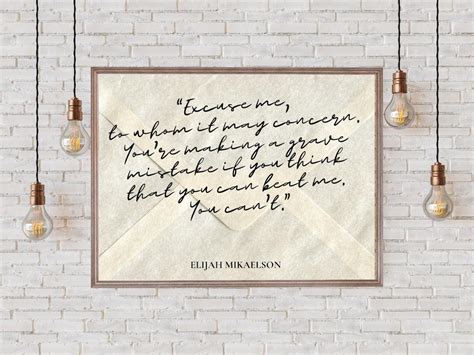 “Excuse me,
to whom it may concern.
You're making a grave
mistake if you think
that you can beat me.
You can't.”
ELIJAH MIKAELSON